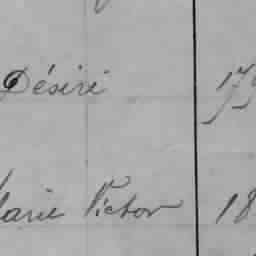 Désiré 179
Marie Victor 18